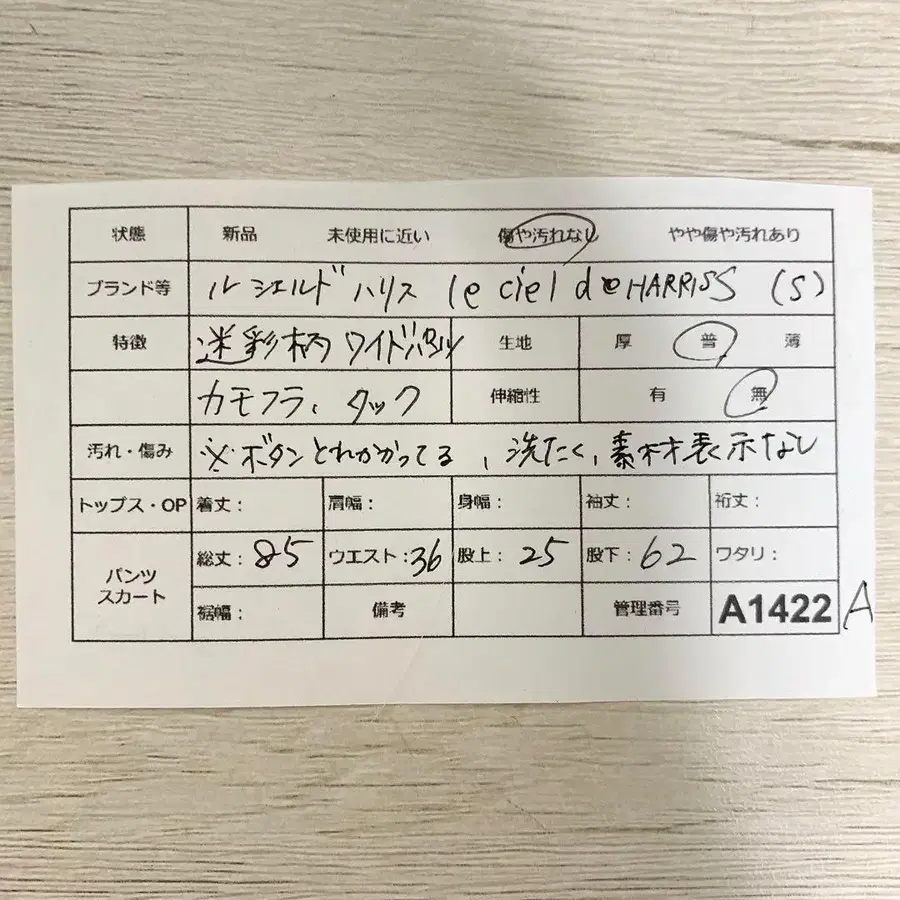 状態 新品 未使用に近い 傷や汚れなし やや傷や汚れあり
ブランド等 ルシエルドハリス le ciel de HARRISS (S)
特徴 迷彩柄 ワイドパンツ 生地 厚 普 薄
カモフラ、タック 伸縮性 有 無
汚れ・傷み ※ボタンとれかかってる、洗たく、素材表示なし
トップス・OP 着丈: 肩幅: 身幅: 袖丈: 裄丈:
パンツ スカート 総丈:85 ウエスト:36 股上:25 股下:62 ワタリ:
裾幅: 備考 管理番号 A1422 A